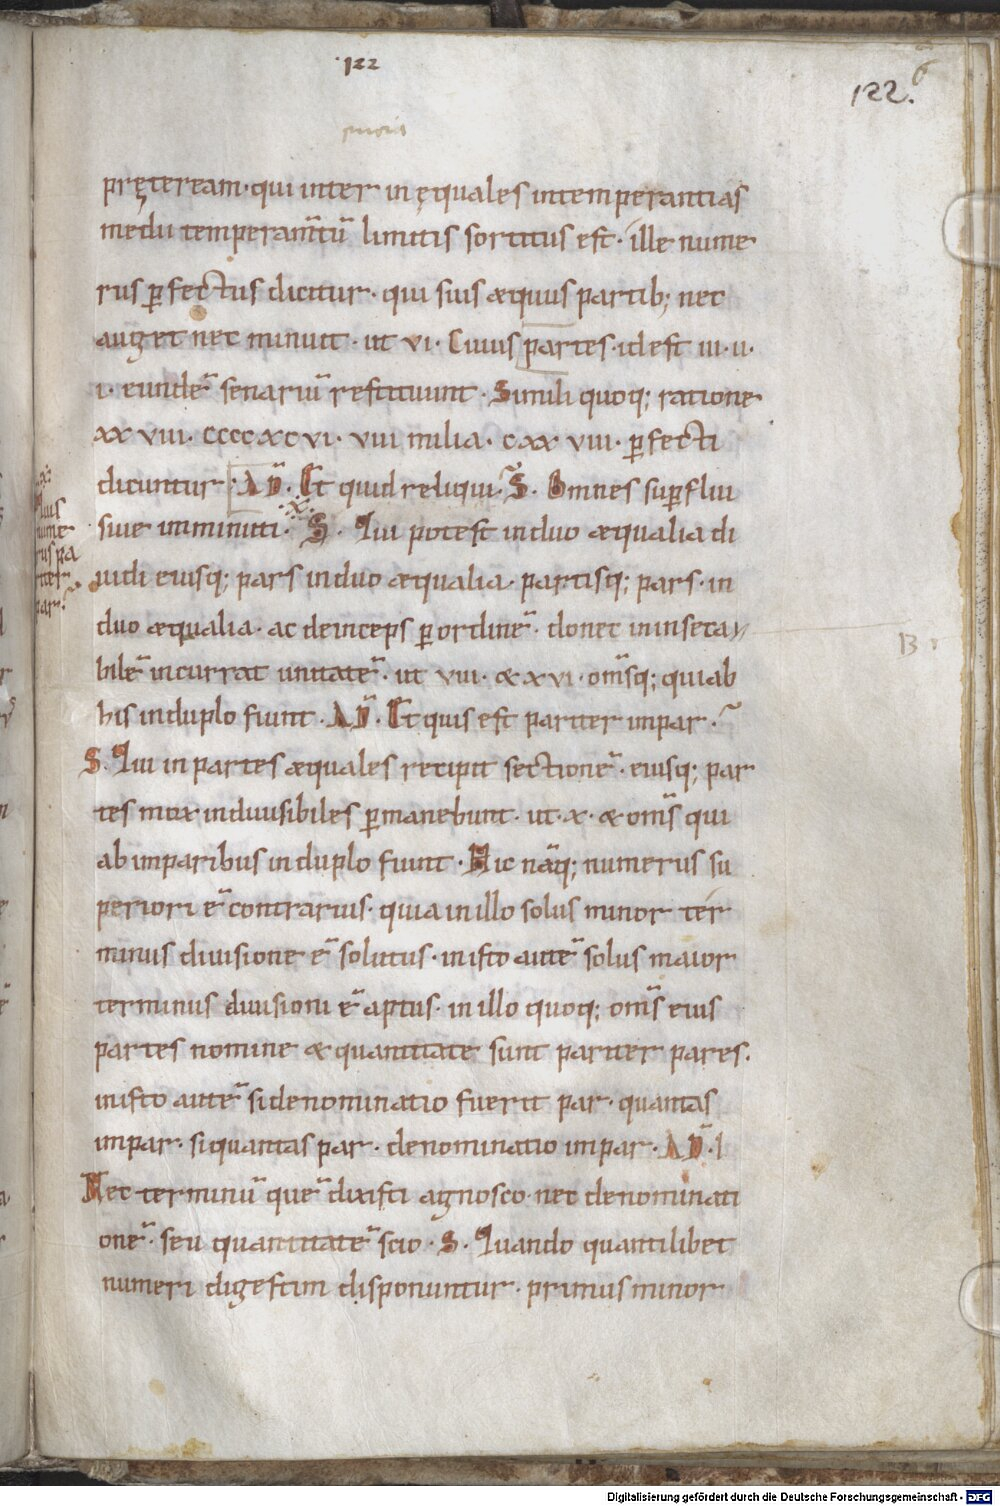 122
122.
6
pręteream· qui inter inęquales intemperantias
medii temperam̄tū limitis sortitus est· ille nume
rus ꝑfectus dicitur· qui suis æquus partib; nec
auget nec minuit· ut vi· Cuius partes· idest iii· ii·
i· eundē senariū restituunt· Simili quoq; ratione
xxviii· ccccxcvi· viii milia· cxxviii· ꝑfecti
dicuntur· AD̄. Et quid reliqui· S. Omnes suꝑflui
siue imminuti· S. Qui potest induo æqualia di
uidi eiusq; pars induo æqualia· partisq; pars· in
duo æqualia· ac deinceps ꝑ ordinē· donec ininseca
bilē incurrat unitatē· ut viii· & xvi· om̄sq; quiab
his induplo fiunt· AD̄. Et quis est pariter impar·
S. Qui in partes æquales recipit sectionē· eiusq; par
tes mox indiuisibiles ꝑmanebunt· ut· x· & om̄s qui
ab imparibus induplo fiunt· Hic nāq; numerus su
periori ē contrarius· quia in illo solus minor ter
minus diuisione ē solutus· inisto autē solus maior
terminus diuisioni ē aptus· in illo quoq; om̄s eius
partes nomine & quantitate sunt pariter pares·
inisto autē si denominatio fuerit par· quantas
impar· si quantas par· denominatio impar· AD̄·
Nec terminū quē dixisti agnosco· nec denominati
onē· seu quantitatē scio· S. Quando quantilibet
numeri digestim disponuntur· primus minor
Quis
nume
rus pa
riter
par·
B
Digitalisierung gefördert durch die Deutsche Forschungsgemeinschaft - DFG